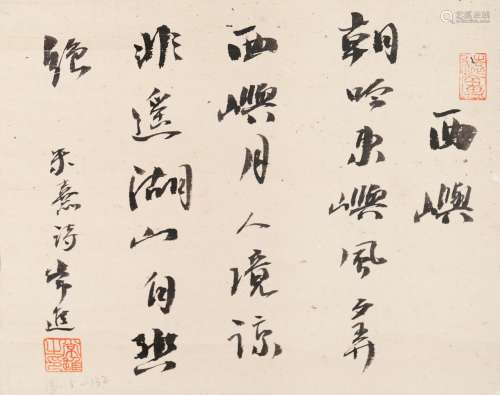 西嶼
朝吟東嶼風夕弄
西嶼月人境諒
非遙湖山自幽
絕
朱熹詩 常進